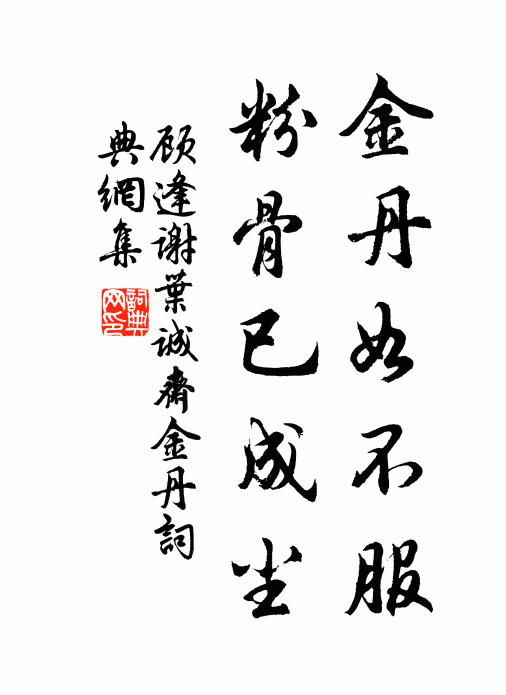 金丹如不服
粉骨已成尘
顾逢谢葉诚斋金丹詞
典網集
詞典网印